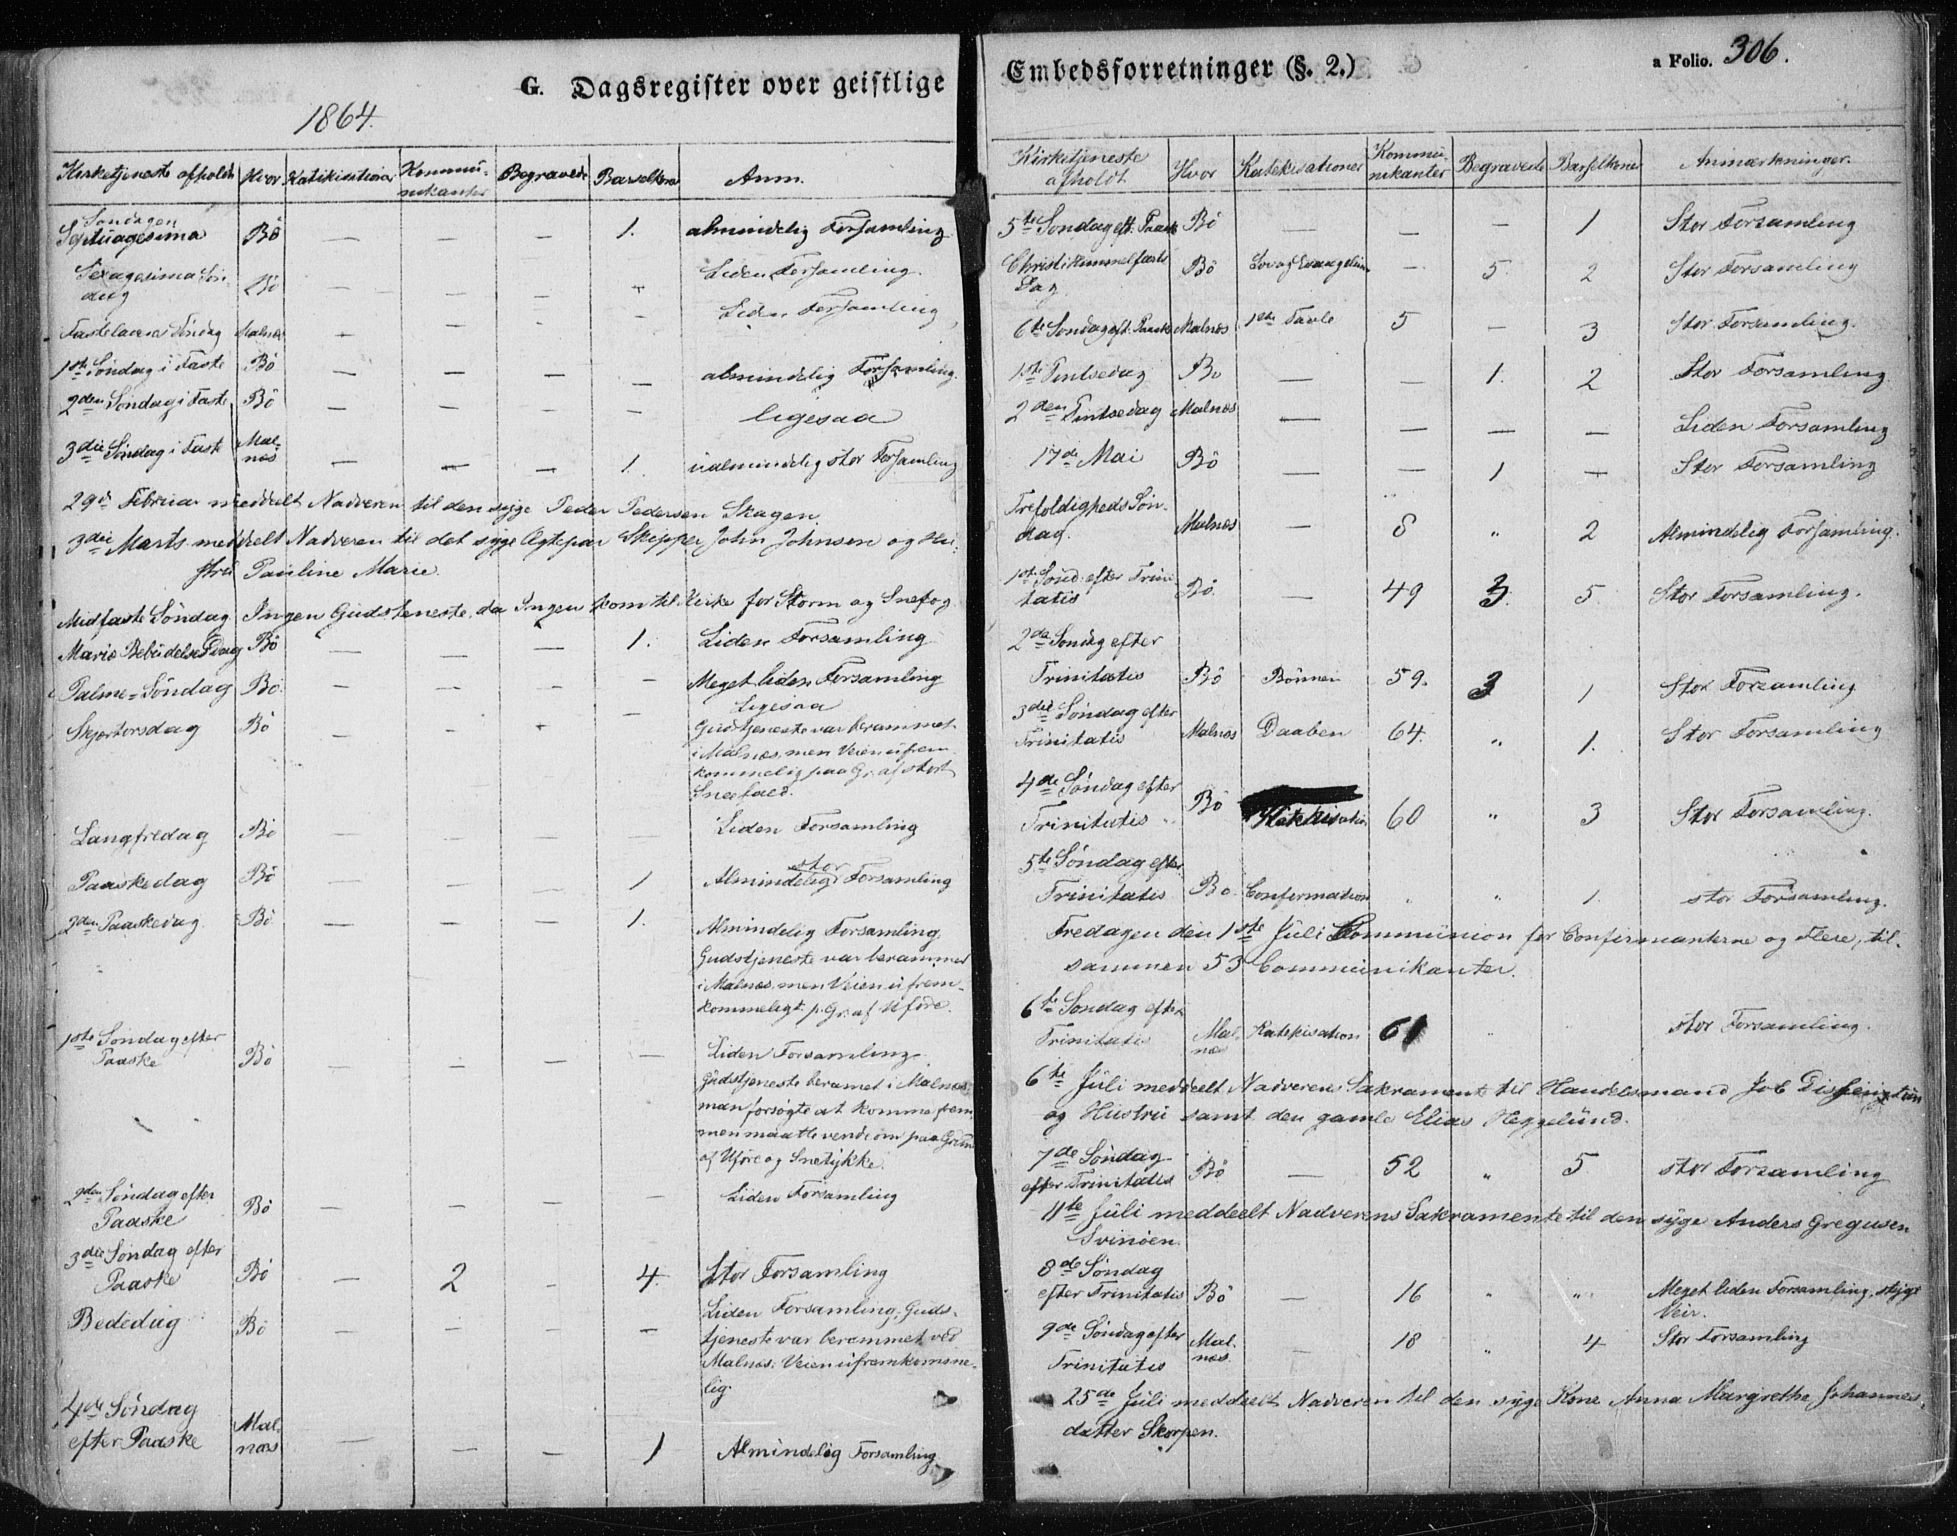 G. Dagsregister over geistlige
1864.
Kirketjeneste afholdt Hvor Katikisationer Kommunikanter Begravede Barselkoner Anm.
Søndagen
Septuagesima Bö — — — 1. almindelig Forsamling
Sexagesima Søndag Bö — — — — Liden Forsamling.
Fastelavens Søndag Malnæs — — — — Liden Forsamling
1ste Søndag i Faste Bö — — — — almindelig Forsamling.
2den Søndag i Faste Bö — — — — ligesaa
3die Søndag i Faste Malnæs — — — 1. ualmindelig stor Forsamling
29de Februar meddelt Nadveren til den syge Peder Pedersen Skagen.
3die Marts meddelt Nadveren til det syge Ægtepar Skipper John Johnsen og Hu-
stru Pauline Marie.
Midfaste Søndag Ingen Gudstjeneste, da Ingen kom til Kirke for Storm og Snefog.
Mariæ Bebudelses Dag Bö — — — 1. Liden Forsamling
Palme=Søndag Bö. — — — — Meget liden Forsamling
Skjærtorsdag Bö — — — — Ligesaa
Gudstjeneste var berammet
i Malnæs, men Veien ufrem-
kommelig paa Gr. af stort
Sneefald.
Langfredag Bö — — — — Liden Forsamling
Paaskedag Bö — — — 1 Almindelig stor Forsamling
2den Paaskedag Bö — — — 1. Almindelig Forsamling
Gudstjeneste var berammet
i Malnæs, men Veien ufrem-
kommeligt p. Gr. af Uføre.
1ste Søndag efter
Paaske Bö — — — — Liden Forsamling.
Gudstjeneste beramet i Malnæs;
man forsøgte at komme frem
men maatte vende om paa Grund
af Uføre og Snetykke.
2den Søndag efter
Paaske Bö — — — — Liden Forsamling
3die Søndag efter
Paaske Bö — 2 — 4. Stor Forsamling
Bededag Bö — — — — Liden Forsamling; Guds-
tjeneste var berammet ved
Malnæs; Veien ufremkomme-
lig.
4de Søndag
efter Paaske Malnæs — — — 1 Almindelig Forsamling
Embedsforretninger (§. 2.)
a Folio. 306.
Kirketjeneste afholdt Hvor Katekisationer Kommunikanter Begravede Barselkoner Anmærkninger.
5te Søndag eft. Paaske Bö — — — 1 Stor Forsamling
Christi Himmelfarts
Dag Bö Lov og Evangelium — 5. 2 Stor Forsamling
6te Søndag eft. Paaske Malnæs 1ste Tavle 5 — 3 Stor Forsamling.
1ste Pintsedag Bö — — 1. 2 Stor Forsamling
2den Pintsedag Malnæs — — — — Liden Forsamling
17de Mai Bö — — 1 — Stor Forsamling
Trefoldigheds Søn-
dag. Malnæs — 8 " 2 Almindelig Forsamling.
1ste Sønd. efter Trini-
tatis Bö. — 49 3. 5. Stor Forsamling.
2den Søndag efter
Trinitatis Bö Bønnen 59. 3 1 Stor Forsamling
3die Søndag efter
Trinitatis Malnæs Daaben 64. " 1. Stor Forsamling
4de Søndag efter
Trinitatis Bö Katekisation 60 " 3 Stor Forsamling.
5te Søndag efter
Trinitatis Bö Confirmation " " 1. stor Forsamling.
Fredagen den 1ste Juli Communion for Confirmanterne og Flere, til-
sammen 53 Communikanter.
6te Søndag efter
Trinitatis Malnæs Katekisation 61 " " stor Forsamling.
6te Juli meddeelt Nadverens Sakramente til Handelsmand Job
og Hustru samt den gamle Elias Heggelund.
7de Søndag
efter Trinitatis Bö — 52 " 5 stor Forsamling
11te Juli meddeelt Nadverens Sakramente til den syge Anders Gregusen
Svinøen.
8de Søndag
efter Trinitatis Bö — 16 " " Meget liden Forsamling, stygt
Veir.
9de Søndag efter
Trinitatis Malnæs. — 18 " 4 Stor Forsamling
25de Juli meddeelt Nadveren til den syge Kone Anna Margrethe Johannes-
datter Skorpen.